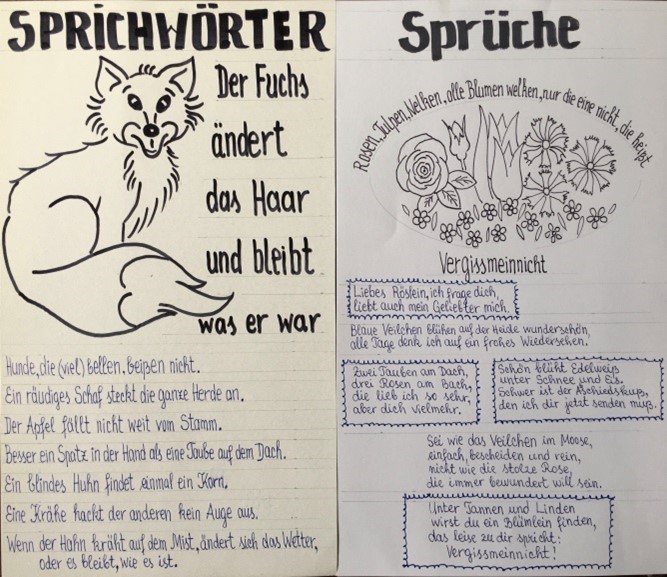 SPRICHWÖRTER
Der Fuchs
ändert
das Haar
und bleibt
was er war
Hunde, die (viel) bellen, beißen nicht.
Ein räudiges Schaf steckt die ganze Herde an.
Der Apfel fällt nicht weit vom Stamm.
Besser ein Spatz in der Hand als eine Taube auf dem Dach.
Ein blindes Huhn findet einmal ein Korn.
Eine Krähe hackt der anderen kein Auge aus.
Wenn der Hahn kräht auf dem Mist, ändert sich das Wetter,
oder es bleibt, wie es ist.
Sprüche
Rosen, Tulpen, Nelken, alle Blumen welken, nur die eine nicht, die heißt
Vergissmeinnicht
Liebes Röslein, ich frage dich,
liebt auch mein Geliebter mich.
Blaue Veilchen blühen auf der Heide wunderschön,
alle Tage denk ich auf ein frohes Wiedersehen.
Zwei Tauben am Dach,
drei Rosen am Bach,
die lieb ich so sehr,
aber dich vielmehr.
Schön blüht Edelweiß
unter Schnee und Eis.
Schwer ist der Abschiedskuß,
den ich dir jetzt senden muß.
Sei wie das Veilchen im Moose,
einfach, bescheiden und rein,
nicht wie die stolze Rose,
die immer bewundert will sein.
Unter Tannen und Linden
wirst du ein Blümlein finden,
das leise zu dir spricht:
Vergissmeinnicht!